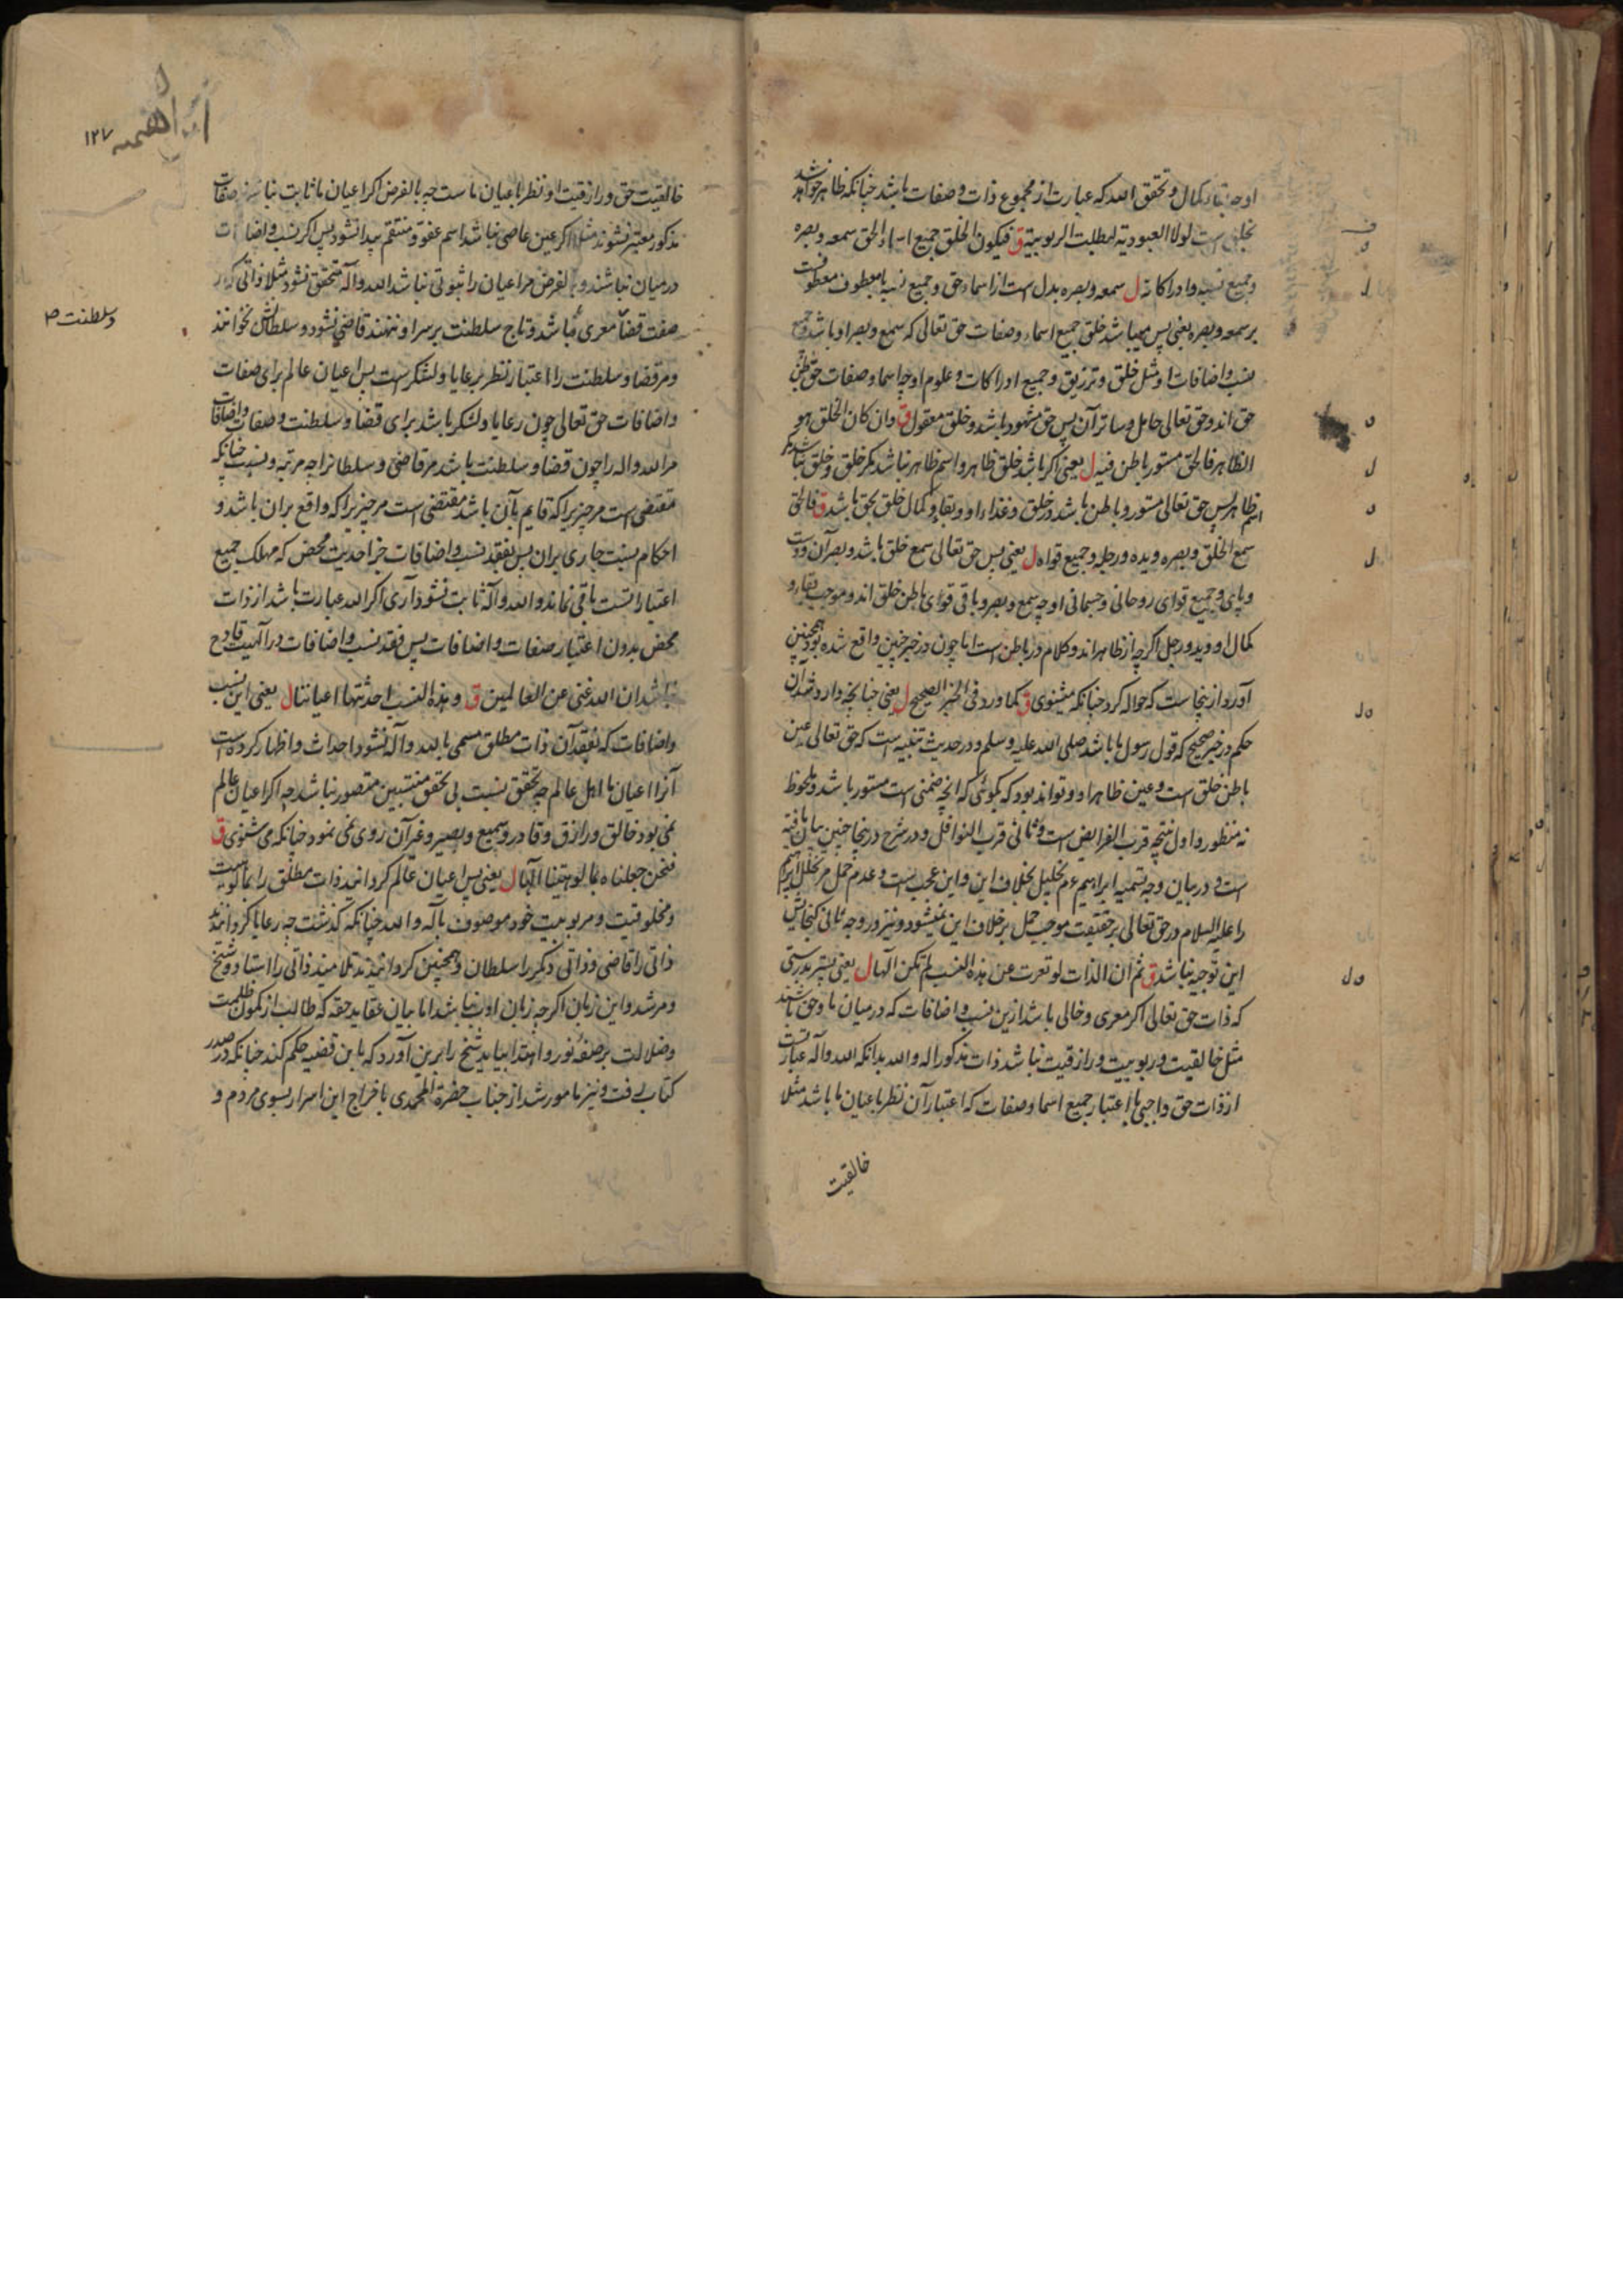 او چه بقا و کمال و تحقق الله که عبارت از مجموع ذات و صفات باشد چنانکه ظاهر خواهد شد
بخلق است لولا العبودیة لبطلت الربوبیة ق فیکون الخلق جمیع اسماء الحق سمعه و بصره
و جمیع نسبه و ادراکاته ل سمعه و بصره بدل است از اسماء حق و جمیع نسبه یا معطوف معطوفست
بر سمعه و بصره یعنی پس میباشد خلق جمیع اسماء و صفات حق تعالی که سمع و بصر او باشد و جمیع
نسب و اضافات او مثل خلق و ترزیق و جمیع ادراکات و علوم او چه اسما و صفات حق باطن
حق اند و حق تعالی حامل و ساتر آن پس حق مشهود باشد و خلق معقول ق و ان کان الخلق هو
الظاهر فالحق مستور باطن فیه ل یعنی اگر باشد خلق ظاهر و اسم ظاهر نباشد مگر خلق و خلق نباشد مگر
اسم ظاهر پس حق تعالی مستور و باطن باشد در خلق و غذاء او و بقاء و کمال خلق بحق باشد ق فالحق
سمع الخلق و بصره و یده و رجله و جمیع قواه ل یعنی پس حق تعالی سمع خلق باشد و بصر آن و دست
و پای و جمیع قوای روحانی و جسمانی او چه سمع و بصر و باقی قوای باطن خلق اند و موجب بقاء و
کمال او و ید و رجل اگرچه از ظاهر اند و کلام در باطن است اما چون در خبر چنین واقع شده بود همچنین
آورد از ینجاست که حواله کرد چنانکه میشنوی ق کما ورد فی الخبر الصحیح ل یعنی چنانچه وارد شد آن
حکم در خبر صحیح که قول رسول ما باشد صلی الله علیه و سلم و در حدیث تنبیه است که حق تعالی عین
باطن خلق است و عین ظاهر او و تواند بود که بگوئی که آنچه ضمنی است مستور باشد و ملحوظ
نه منظور و اول نتیجه قرب الفرایض است و ثانی قرب النوافل و در شرح درینجا چنین بیان یافته
است و در بیان وجه تسمیه ابراهیم ع م بخلیل بخلاف این و این عجب است و عدم حمل مر تخلل ابراهیم
را علیه السلام در حق تعالی بر حقیقت موجب حمل بر خلاف این نمیشود و نیز در وجه ثانی گنجایش
این توجیه نباشد ق ثم ان الذات لو تعرت عن هذه النسب لم تکن الها ل یعنی پستر بدرستی
که ذات حق تعالی اگر معری و خالی باشد ازین نسب و اضافات که درمیان ما و حق باشند
مثل خالقیت و ربوبیت و رازقیت نباشد ذات مذکور اله و الله بدانکه الله و آله عبارتست
از ذات حق واجبی با اعتبار جمیع اسما و صفات که اعتبار آن نظر باعیان ما باشد مثلا
خالقیت
۱۲۷
خالقیت حق و رازقیت او نظر باعیان ماست چه بالفرض اگر اعیان ما ثابت نباشند صفات
مذکور معتبر نشوند مثلا اگر عین عاصی نباشد اسم عفو و منتقم پیدا نشود پس اگر نسب و اضافات
درمیان نباشند و بالفرض مر اعیان را ثبوتی نباشد الله و آله متحقق نشود مثلا ذاتی که از
صفت قضا معری باشد و تاج سلطنت بر سر او ننهند قاضی نشود و سلطانش نخوانند
و مر قضا و سلطنت را اعتبار نظر بر عایا و لشکر است پس اعیان عالم برای صفات
و اضافات حق تعالی چون رعایا و لشکر باشد برای قضا و سلطنت و صفات و اضافات
مر الله و اله را چون قضا و سلطنت باشد مر قاضی و سلطانرا چه مرتبه و نسبت چنانکه
مقتضی است مر چیزیرا که قایم بآن باشد مقتضی است مر چیزیرا که واقع بران باشد و
احکام نسبت جاری بران پس بفقد نسب و اضافات جز احدیت محض که مهلک جمیع
اعتبارا تست باقی نماند و الله و آله ثابت نشود آری اگر الله عبارت باشد از ذات
محض بدون اعتبار صفات و اضافات پس فقد نسب و اضافات در آلهیت قادح
نباشد ان الله غنی عن العالمین ق و هذه النسب احدثتها اعیاننا ل یعنی این نسب
و اضافات که بفقد آن ذات مطلق مسمی بالله و آله نشود احداث و اظهار کرده است
آنرا اعیان ما اهل عالم چه تحقق نسبت بی تحقق منتسبین متصور نباشد چه اگر اعیان عالم
نمی بود خالق و رازق و قادر و سمیع و بصیر و غیر آن روی نمی نمود چنانکه می شنوی ق
فنحن جعلناه بمالوهیتنا الها ل یعنی پس اعیان عالم گردانید ذات مطلق را بمالوهیت
و مخلوقیت و مربوبیت خود موصوف بآله و الله چنانکه گذشت چه رعایا گردانند
ذاتی را قاضی و ذاتی دیگر را سلطان و همچنین گردانیدند تلامیذ ذاتی را استاد و شیخ
و مرشد و این زبان اگرچه زبان ادب نباشد اما بیان عقاید حقه که طالب از کمون ظلمت
و ضلالت بر صفه نور و اهتدا بیاید شیخ را برین آورد که باین قضیه حکم کند چنانکه در صدر
کتاب رفت و نیز مامور شد از جناب حضرة المحمدی باخراج این اسرار بسوی مردم و
و سلطنت